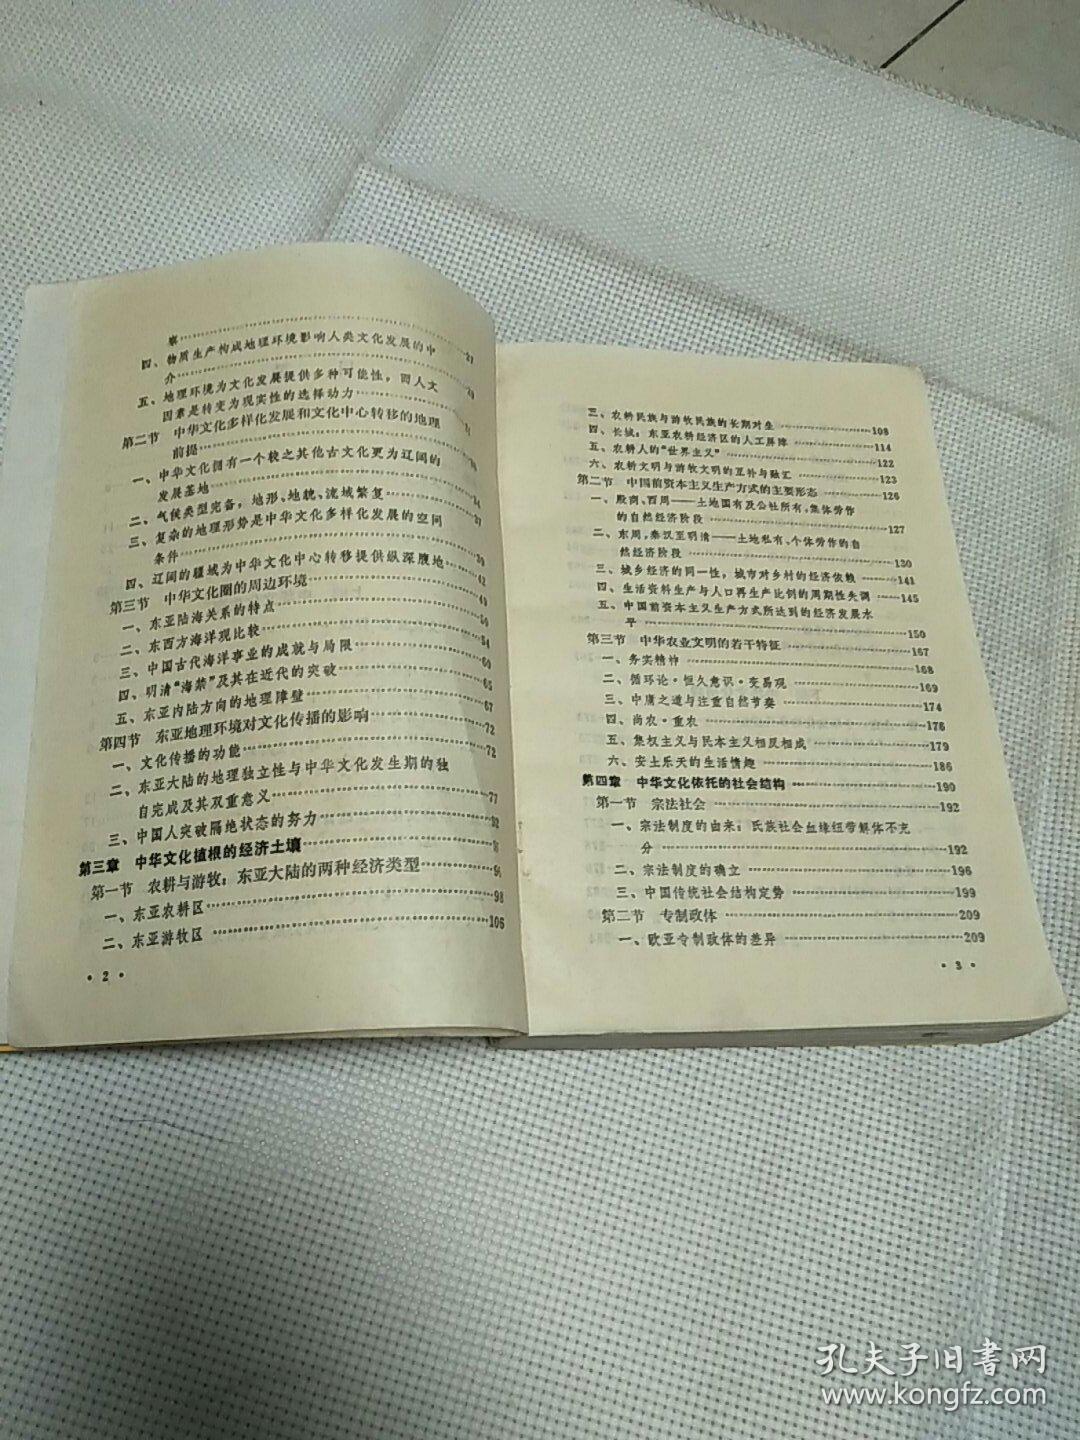 察……27
四、物质生产构成地理环境影响人类文化发展的中
介……29
五、地理环境为文化发展提供多种可能性，而人文
因素是转变为现实性的选择动力……
第二节 中华文化多样化发展和文化中心转移的地理
前提……
一、中华文化拥有一个较之其他古文化更为辽阔的
发展基地……34
二、气候类型完备，地形、地貌、流域繁复……37
三、复杂的地理形势是中华文化多样化发展的空间
条件……39
四、辽阔的疆域为中华文化中心转移提供纵深腹地……42
第三节 中华文化圈的周边环境……49
一、东亚陆海关系的特点……50
二、东西方海洋观比较……54
三、中国古代海洋事业的成就与局限……60
四、明清“海禁”及其在近代的突破……65
五、东亚内陆方向的地理障壁……67
第四节 东亚地理环境对文化传播的影响……72
一、文化传播的功能……72
二、东亚大陆的地理独立性与中华文化发生期的独
自完成及其双重意义……77
三、中国人突破隔绝状态的努力……92
第三章 中华文化植根的经济土壤……
第一节 农耕与游牧：东亚大陆的两种经济类型……
一、东亚农耕区……98
二、东亚游牧区……106
• 2 •
三、农耕民族与游牧民族的长期对垒……108
四、长城：东亚农耕经济区的人工屏障……114
五、农耕人的“世界主义”……122
六、农耕文明与游牧文明的互补与融汇……123
第二节 中国前资本主义生产方式的主要形态……126
一、殷商、西周——土地国有及公社所有，集体劳作
的自然经济阶段……127
二、东周，秦汉至明清——土地私有、个体劳作的自
然经济阶段……130
三、城乡经济的同一性，城市对乡村的经济依赖……141
四、生活资料生产与人口再生产比例的周期性失调……145
五、中国前资本主义生产方式所达到的经济发展水
平……150
第三节 中华农业文明的若干特征……167
一、务实精神……168
二、循环论·恒久意识·变易观……169
三、中庸之道与注重自然节奏……174
四、尚农·重农……176
五、集权主义与民本主义相反相成……179
六、安土乐天的生活情趣……186
第四章 中华文化依托的社会结构……190
第一节 宗法社会……192
一、宗法制度的由来：氏族社会血缘纽带解体不充
分……192
二、宗法制度的确立……196
三、中国传统社会结构定势……199
第二节 专制政体……209
一、欧亚专制政体的差异……209
• 3 •
孔夫子旧书网
www.kongfz.com